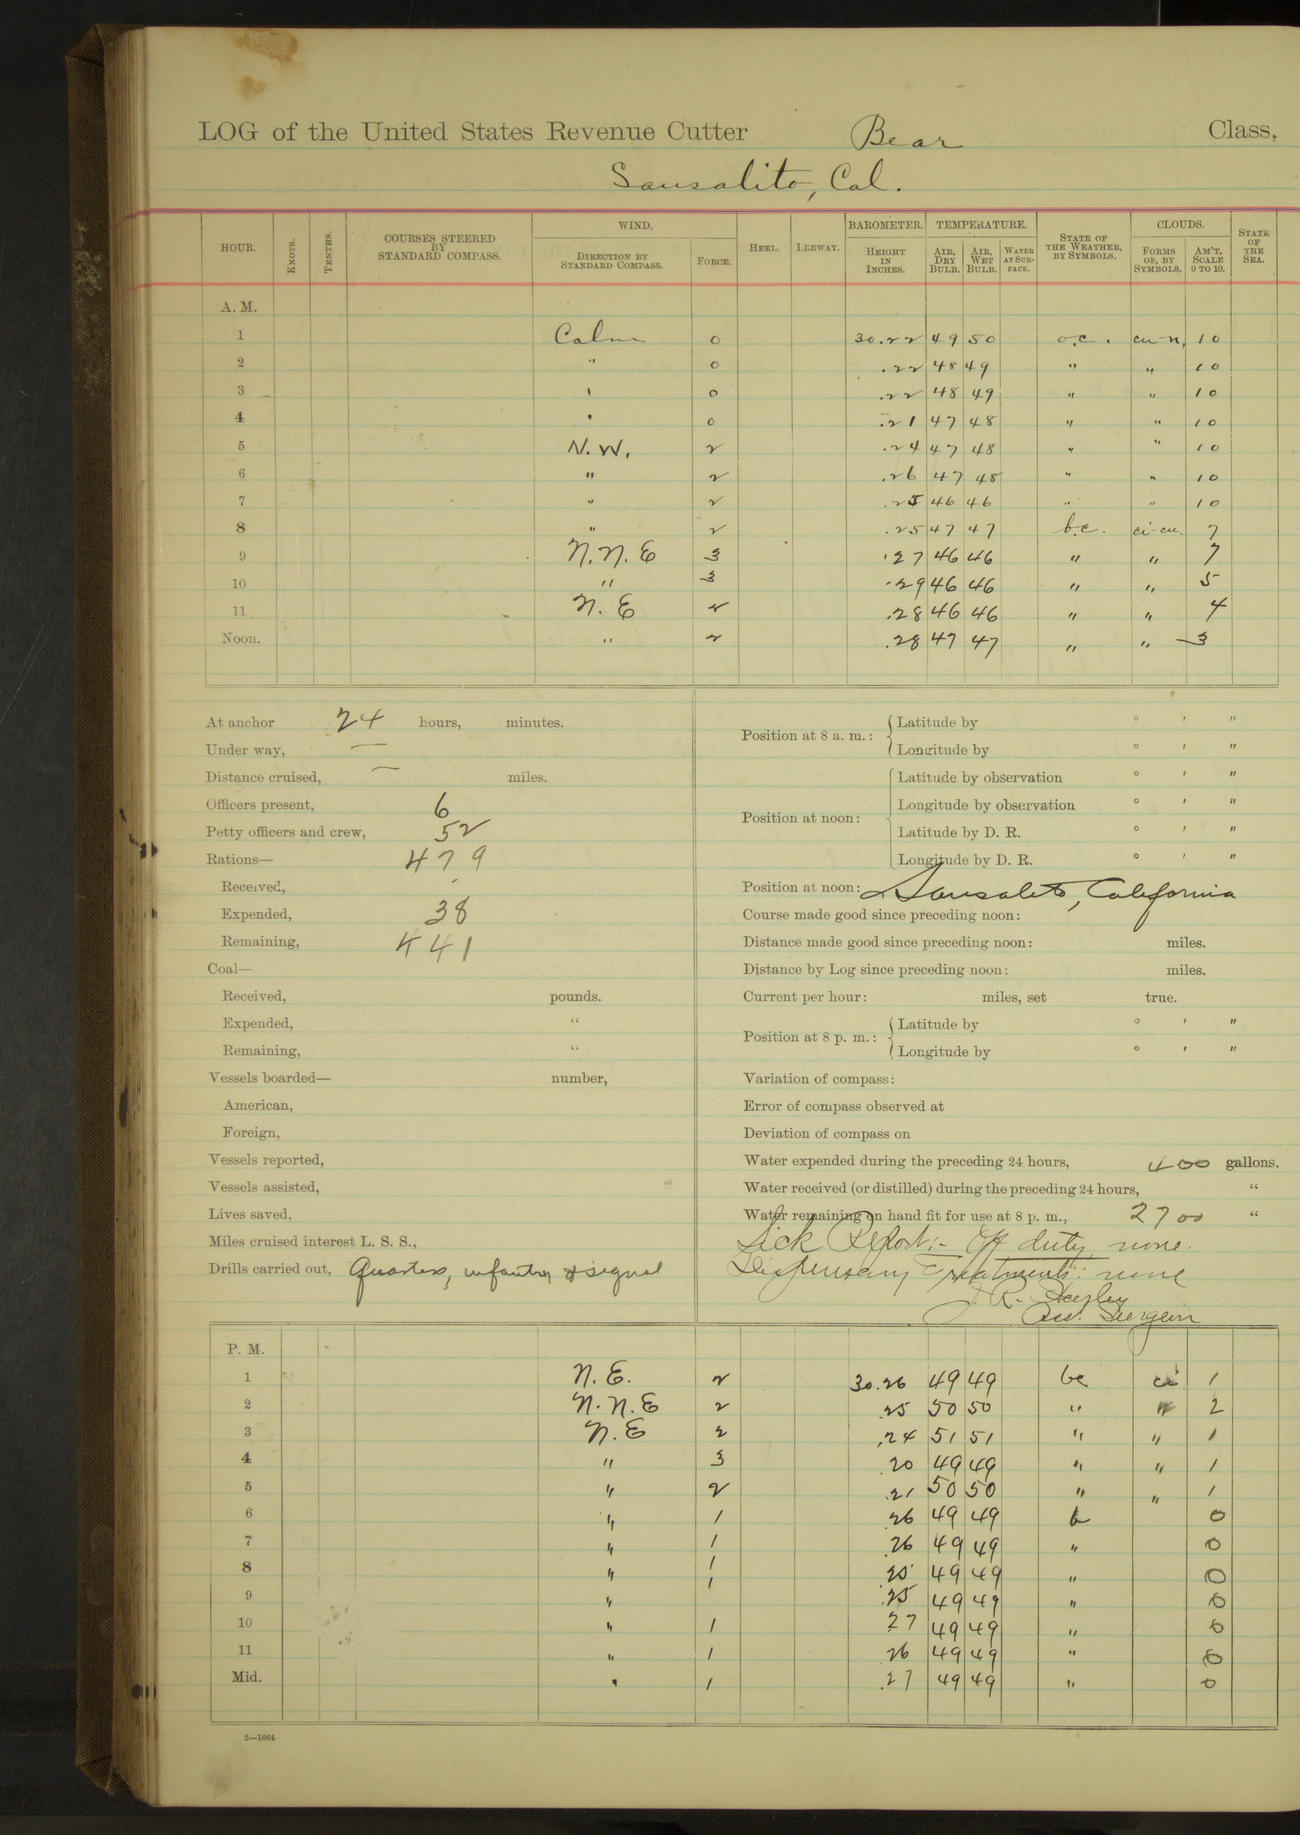 LOG of the United States Revenue Cutter Bear Class,
Sausalito, Cal.
HOUR. KNOTS. TENTHS. COURSES STEERED BY STANDARD COMPASS. WIND. DIRECTION BY STANDARD COMPASS. FORCE. HEEL. LEEWAY. BAROMETER. HEIGHT IN INCHES. TEMPERATURE. AIR, DRY BULB. AIR, WET BULB. WATER AT SURFACE. STATE OF THE WEATHER, BY SYMBOLS. CLOUDS. FORMS OF, BY SYMBOLS. AM'T, SCALE 0 TO 10. STATE OF THE SEA.
A. M.
1 Calm 0 30.22 49 50 o.c. cu-n, 10
2 " 0 .22 48 49 " " 10
3 " 0 .22 48 49 " " 10
4 " 0 .21 47 48 " " 10
5 N.W. 2 .24 47 48 " " 10
6 " 2 .26 47 48 " " 10
7 " 2 .25 46 46 " " 10
8 " 2 .25 47 47 b.c. ci-cu. 7
9 N.N.E 3 .27 46 46 " " 7
10 " 3 .29 46 46 " " 5
11 N.E 2 .28 46 46 " " 4
Noon. " 2 .28 47 47 " " 3
At anchor 24 hours, minutes.
Under way, —
Distance cruised, — miles.
Officers present, 6
Petty officers and crew, 52
Rations— 479
Received,
Expended, 38
Remaining, 441
Coal—
Received, pounds.
Expended, "
Remaining, "
Vessels boarded— number,
American,
Foreign,
Vessels reported,
Vessels assisted,
Lives saved,
Miles cruised interest L. S. S.,
Drills carried out, Quarters, infantry & signal
Position at 8 a. m.: Latitude by ° ' "
Longitude by ° ' "
Position at noon: Latitude by observation ° ' "
Longitude by observation ° ' "
Latitude by D. R. ° ' "
Longitude by D. R. ° ' "
Position at noon: Sausalito, California
Course made good since preceding noon:
Distance made good since preceding noon: miles.
Distance by Log since preceding noon: miles.
Current per hour: miles, set true.
Position at 8 p. m.: Latitude by ° ' "
Longitude by ° ' "
Variation of compass:
Error of compass observed at
Deviation of compass on
Water expended during the preceding 24 hours, 400 gallons.
Water received (or distilled) during the preceding 24 hours, "
Water remaining on hand fit for use at 8 p. m., 2700 "
Sick Report:- Off duty, none.
Dispensary Treatments: none
J. R.
Ass. Surgeon
P. M.
1 N.E. 2 30.26 49 49 bc ci 1
2 N.N.E 2 .25 50 50 " " 2
3 N.E 2 .24 51 51 " " 1
4 " 3 .20 49 49 " " 1
5 " 2 .21 50 50 " " 1
6 " 1 .26 49 49 b 0
7 " 1 .26 49 49 " 0
8 " 1 .25 49 49 " 0
9 " 1 .25 49 49 " 0
10 " 1 .27 49 49 " 0
11 " 1 .26 49 49 " 0
Mid. " 1 .27 49 49 " 0
2—1664